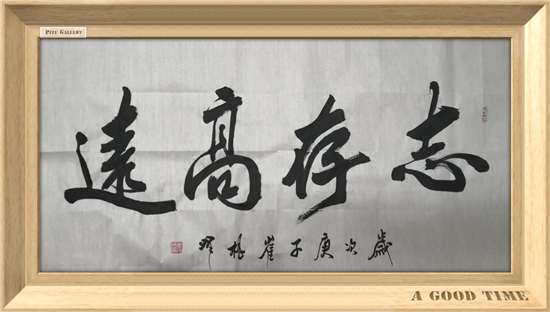 Pite Gallery
志存高遠
歲次庚子崔
A GOOD TIME